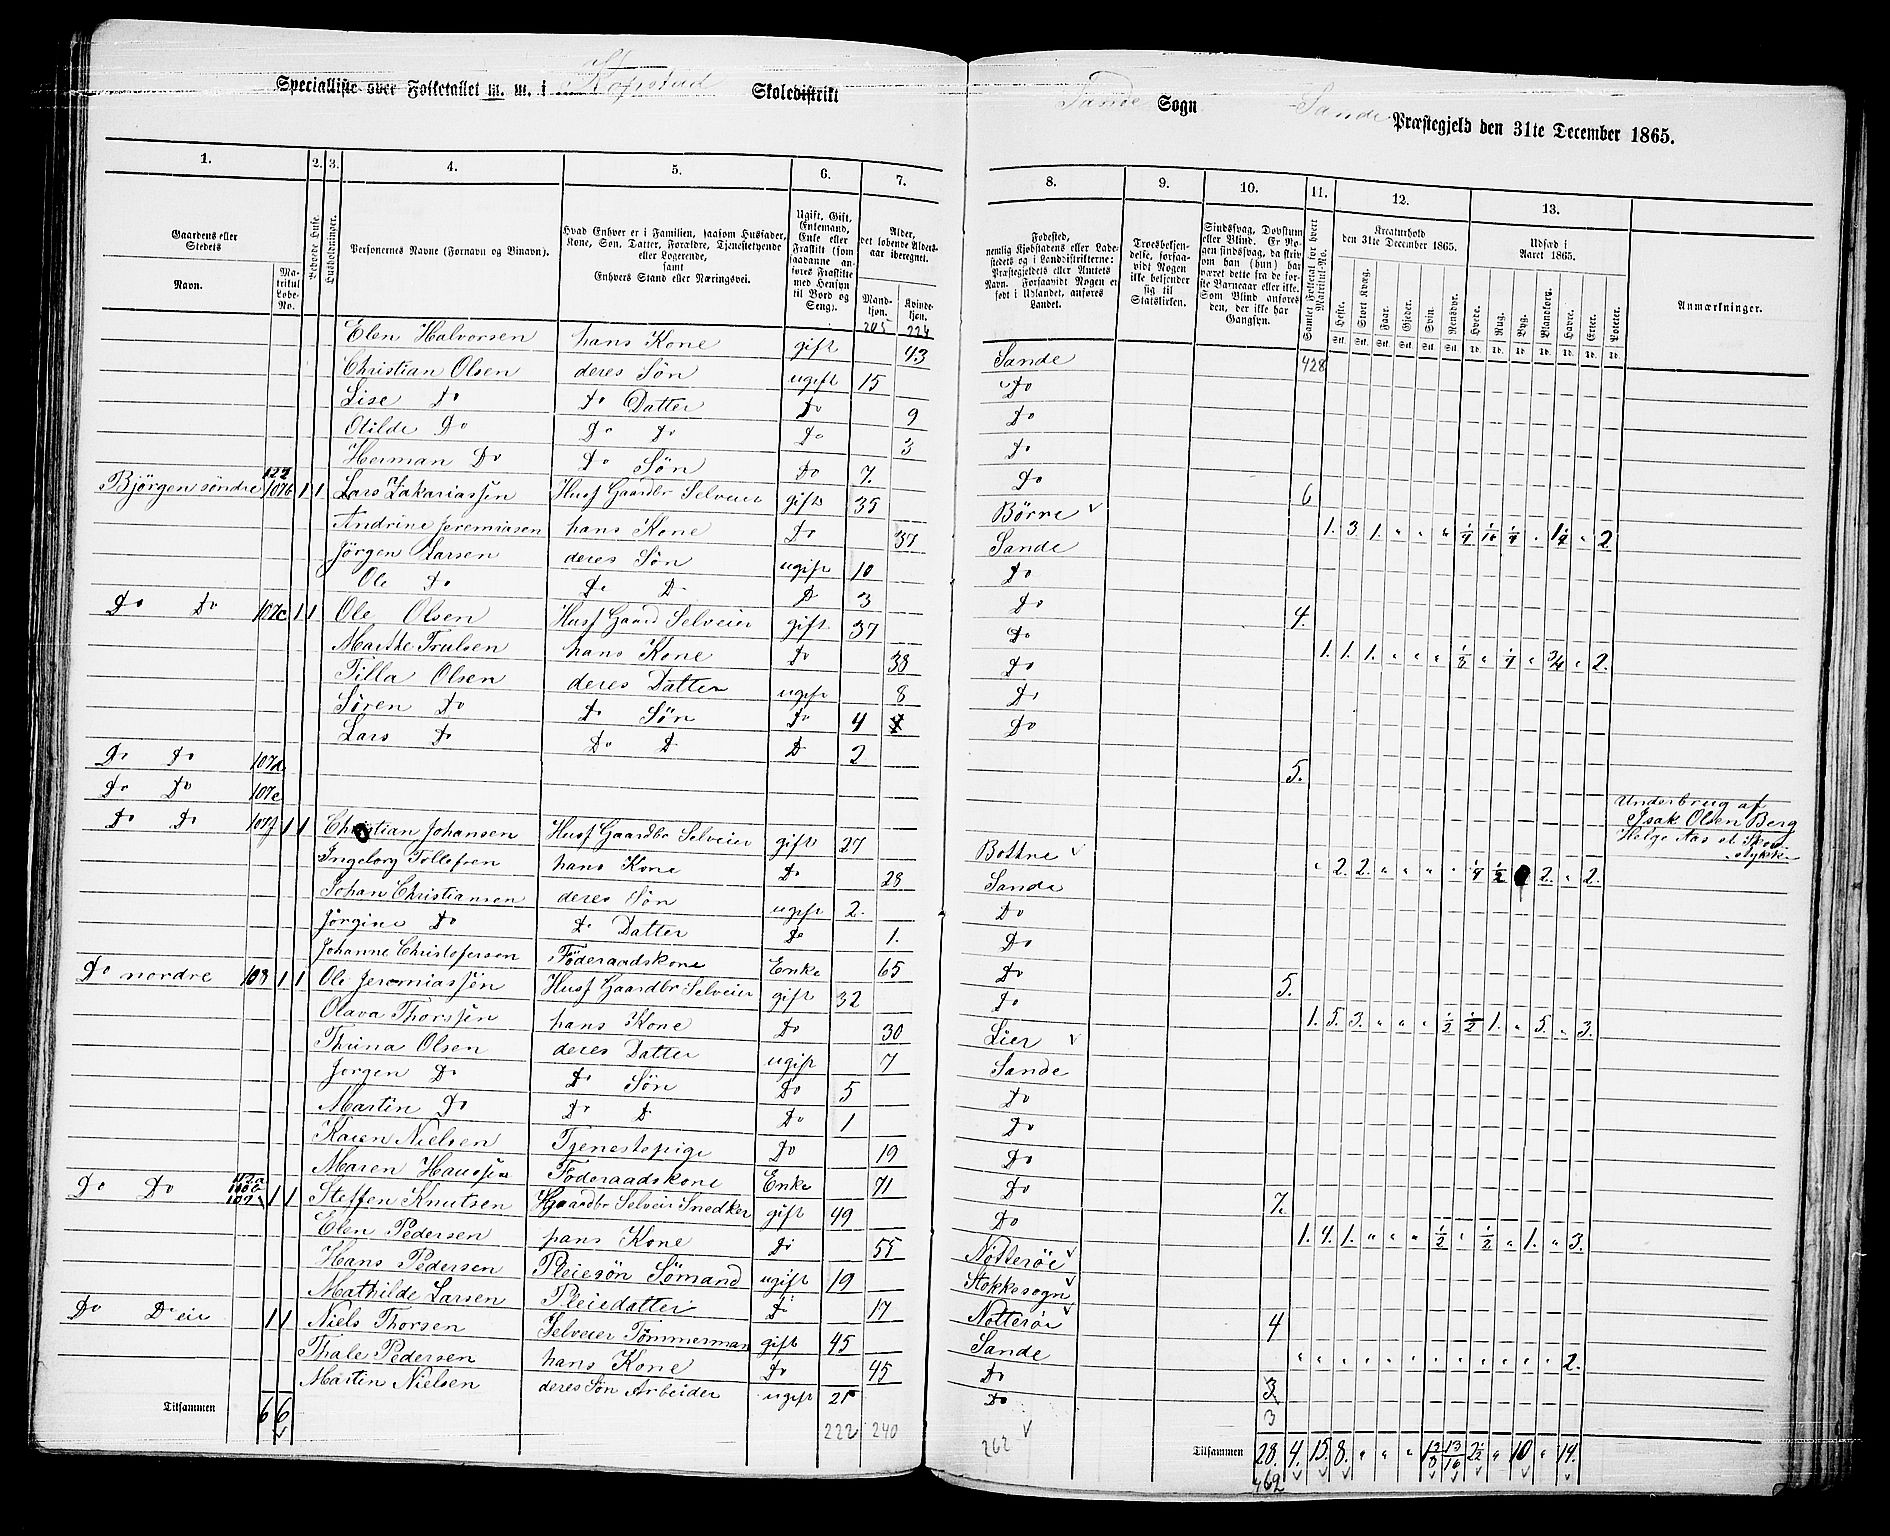 Specialliste over Folketallet m. m. i Kopstad Skoledistrikt
Sande Sogn Sande Præstegjeld den 31te December 1865.
1. 2. 3. 4. 5. 6. 7.
8. 9. 10. 11. 12. 13.
Gaardens eller Stedets
Navn. Matrikul Løbe-No.
Beboede Huse.
Husholdninger.
Personernes Navne (Fornavn og Binavn).
Hvad Enhver er i Familien, saasom Husfader, Kone, Søn, Datter, Forældre, Tjenestetyende eller Logerende, samt Enhvers Stand eller Næringsvei.
Ugift, Gift, Enkemand, Enke eller Fraskilt (som saadanne anføres Fraskilte med Hensyn til Bord og Seng).
Alder, det løbende Alders-aar iberegnet.
Mand-kjøn. Kvinde-kjøn.
Fødested, nemlig Kjøbstadens eller Ladestedets og i Landdistrikterne: Præstegjeldets eller Amtets Navn. Forsaavidt Nogen er født i Udlandet, anføres Landet.
Troesbekjendelse, forsaavidt Nogen ikke bekjender sig til Statskirken.
Sindssvag, Døvstum eller Blind. Er Nogen sindssvag, da skriv om han (hun) har været dette fra de første Barneaar eller ikke. Som Blind anføres den, der ikke har Gangsyn.
Samlet Folketal for hvert Matrikul-No.
Kreaturhold den 31te December 1865.
Udsæd i Aaret 1865.
Heste. Stort Kvæg. Faar. Gjeder. Svin. Rensdyr. Hvede. Rug. Byg. Blandkorn. Havre. Erter. Poteter.
Anmærkninger.
205 224 428
Elen Halvorsen hans Kone gift 43 Sande
Christian Olsen deres Søn ugift 15 Do
Lise Do Do Datter Do 9 Do
Otilde Do Do Do Do 3 Do
Herman Do Do Søn Do 7. Do 6
122
Bjørgen søndre 107b 1 1 Lars Zakariassen Husf Gaardbr Selveier gift 35 Børre 1. 3 1. " " " 1/4 1/16 1/4 " 1 1/4 " 2
Andrine Jeremiasen hans Kone Do 37 Sande
Jörgen Larsen deres Søn ugift 10 Do
Ole Do Do D D 3 Do 4.
Do Do 107c 1 1 Ole Olsen Husf Gaard Selveier gift. 37 Do 1. 1. 1. " " " 1/8 " 1/4 " 3/4 " 2.
Marthe Trulsen hans Kone Do 38 Do
Tilla Olsen deres Datter ugift 8 Do
Søren Do Do Søn Do 4 Do
Lars Do Do D D 2 5.
Do Do 107d
Do Do 107e Underbrug af
Isak Olsen Berg
Do Do 107f 1 1 Christian Johansen Husf Gaardbr Selveier gift 27 Bottne " 2. 2. " " " " 1/4 1/2 2. " 2.
Ingeborg Tollefsen hans Kone Do 28 Sande
Johan Christiansen deres Søn ugift 2. Do
Jörgine Do Do Datter Do 1. Do
Johanne Christofersen Föderaadskone Enke 65 Do 5.
Do nordre 108 1 1 Ole Jeremiassen Husf Gaardbr Selveier gift 32 Do 1. 5. 3. " " " 1/2 1/2 1. " 5. " 3.
Olava Thorssen hans Kone Do 30 Lier
Thrina Olsen deres Datter ugift 7 Sande
Jørgen Do Do Søn Do 5 Do
Martin Do Do D Do 1 Do
Karen Nielsen Tjenestepige Do 19 Do
Maren Hanssen Föderaadskone Enke 71 Do 7.
Do Do 1 1 Steffen Knutsen Gaardbr Selveier Snedker gift 49 Do 1. 4. 1. " " " 1/2 " 1/2 " 1. " 3.
Elen Pedersen hans Kone Do 55 Nøtterøe
Hans Pedersen Pleiesøn Sømand ugift 19 Stokkesogn
Mathilde Larsen Pleiedatter Do 17 Nøtterøe 4
Do Do eie 1 1 Niels Thorsen Selveier Tømmerman gift 45 Sande " " " " " " " " " " " " 2.
Thale Pedersen hans Kone Do 45 Do
Martin Nielsen deres Søn Arbeider ugift 21 Do 3.
3
Tilsammen 6 6 222 240 262
Tilsammen 28. 4. 15. 8. " " " 13/16 2 1/2 " 10 " 14.
462